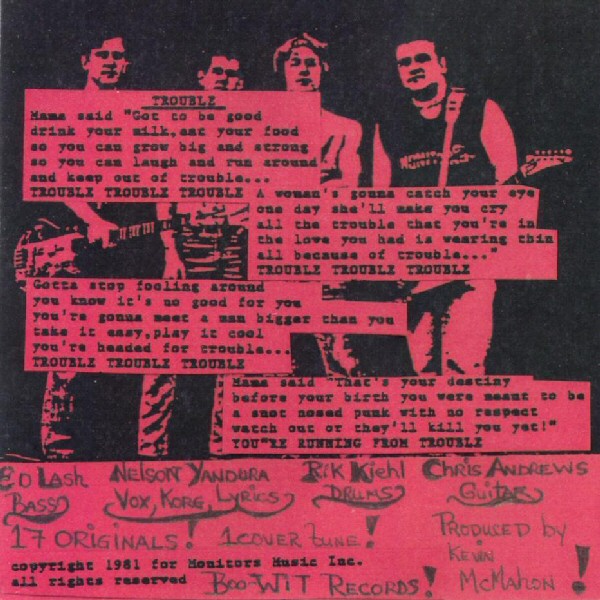 TROUBLE
Mama said "Got to be good
drink your milk,eat your food
so you can grow big and strong
so you can laugh and run around
and keep out of trouble...
TROUBLE TROUBLE TROUBLE
A woman's gonna catch your eye
one day she'll make you cry
all the trouble that you're in
the love you had is wearing thin
all because of trouble..."
TROUBLE TROUBLE TROUBLE
Gotta stop fooling around
you know it's no good for you
you're gonna meet a man bigger than you
take it easy,play it cool
you're headed for trouble...
TROUBLE TROUBLE TROUBLE
Mama said "That's your destiny
before your birth you were meant to be
a snot nosed punk with no respect
watch out or they'll kill you yet!"
YOU"RE RUNNING FROM TROUBLE
ED LASH
BASS
NELSON YANDURA
VOX, KORG, LYRICS
RIK KIEHL
DRUMS
CHRIS ANDREWS
GUITAR
17 ORIGINALS!
1 COVER TUNE!
PRODUCED BY
KEVIN
MCMAHON!
copyright 1981 for Monitors Music Inc.
all rights reserved
BOO-WIT RECORDS!